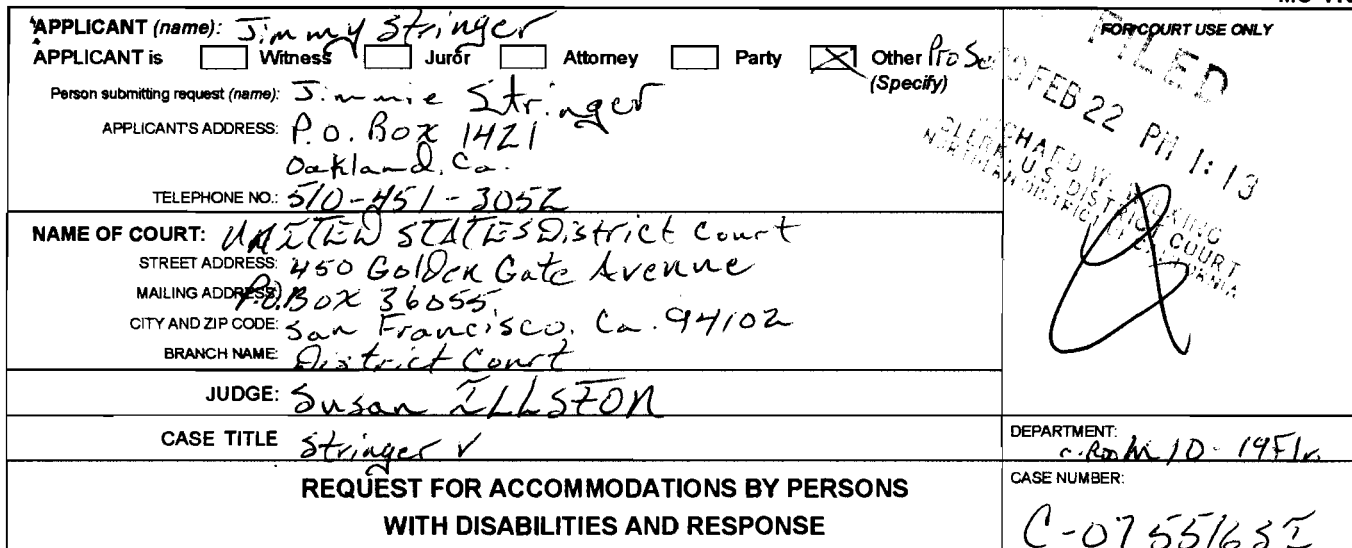 APPLICANT (name): Jimmy Stringer
APPLICANT is Witness Juror Attorney Party Other Pro Se
(Specify)
Person submitting request (name): Jimmie Stringer
APPLICANT'S ADDRESS: P.O. Box 1421
Oakland, Ca.
TELEPHONE NO.: 510-451-3052
FOR COURT USE ONLY
FILED
FEB 22 PM 1:13
RICHARD W. WIEKING
CLERK, U.S. DISTRICT COURT
NORTHERN DISTRICT OF CALIFORNIA
NAME OF COURT: UNITED STATES District Court
STREET ADDRESS: 450 Golden Gate Avenue
MAILING ADDRESS: P.O. Box 36055
CITY AND ZIP CODE: San Francisco, Ca. 94102
BRANCH NAME: District Court
JUDGE: Susan ILLSTON
CASE TITLE Stringer V
DEPARTMENT:
10-19Flr.
REQUEST FOR ACCOMMODATIONS BY PERSONS
WITH DISABILITIES AND RESPONSE
CASE NUMBER:
C-07 5516 SI